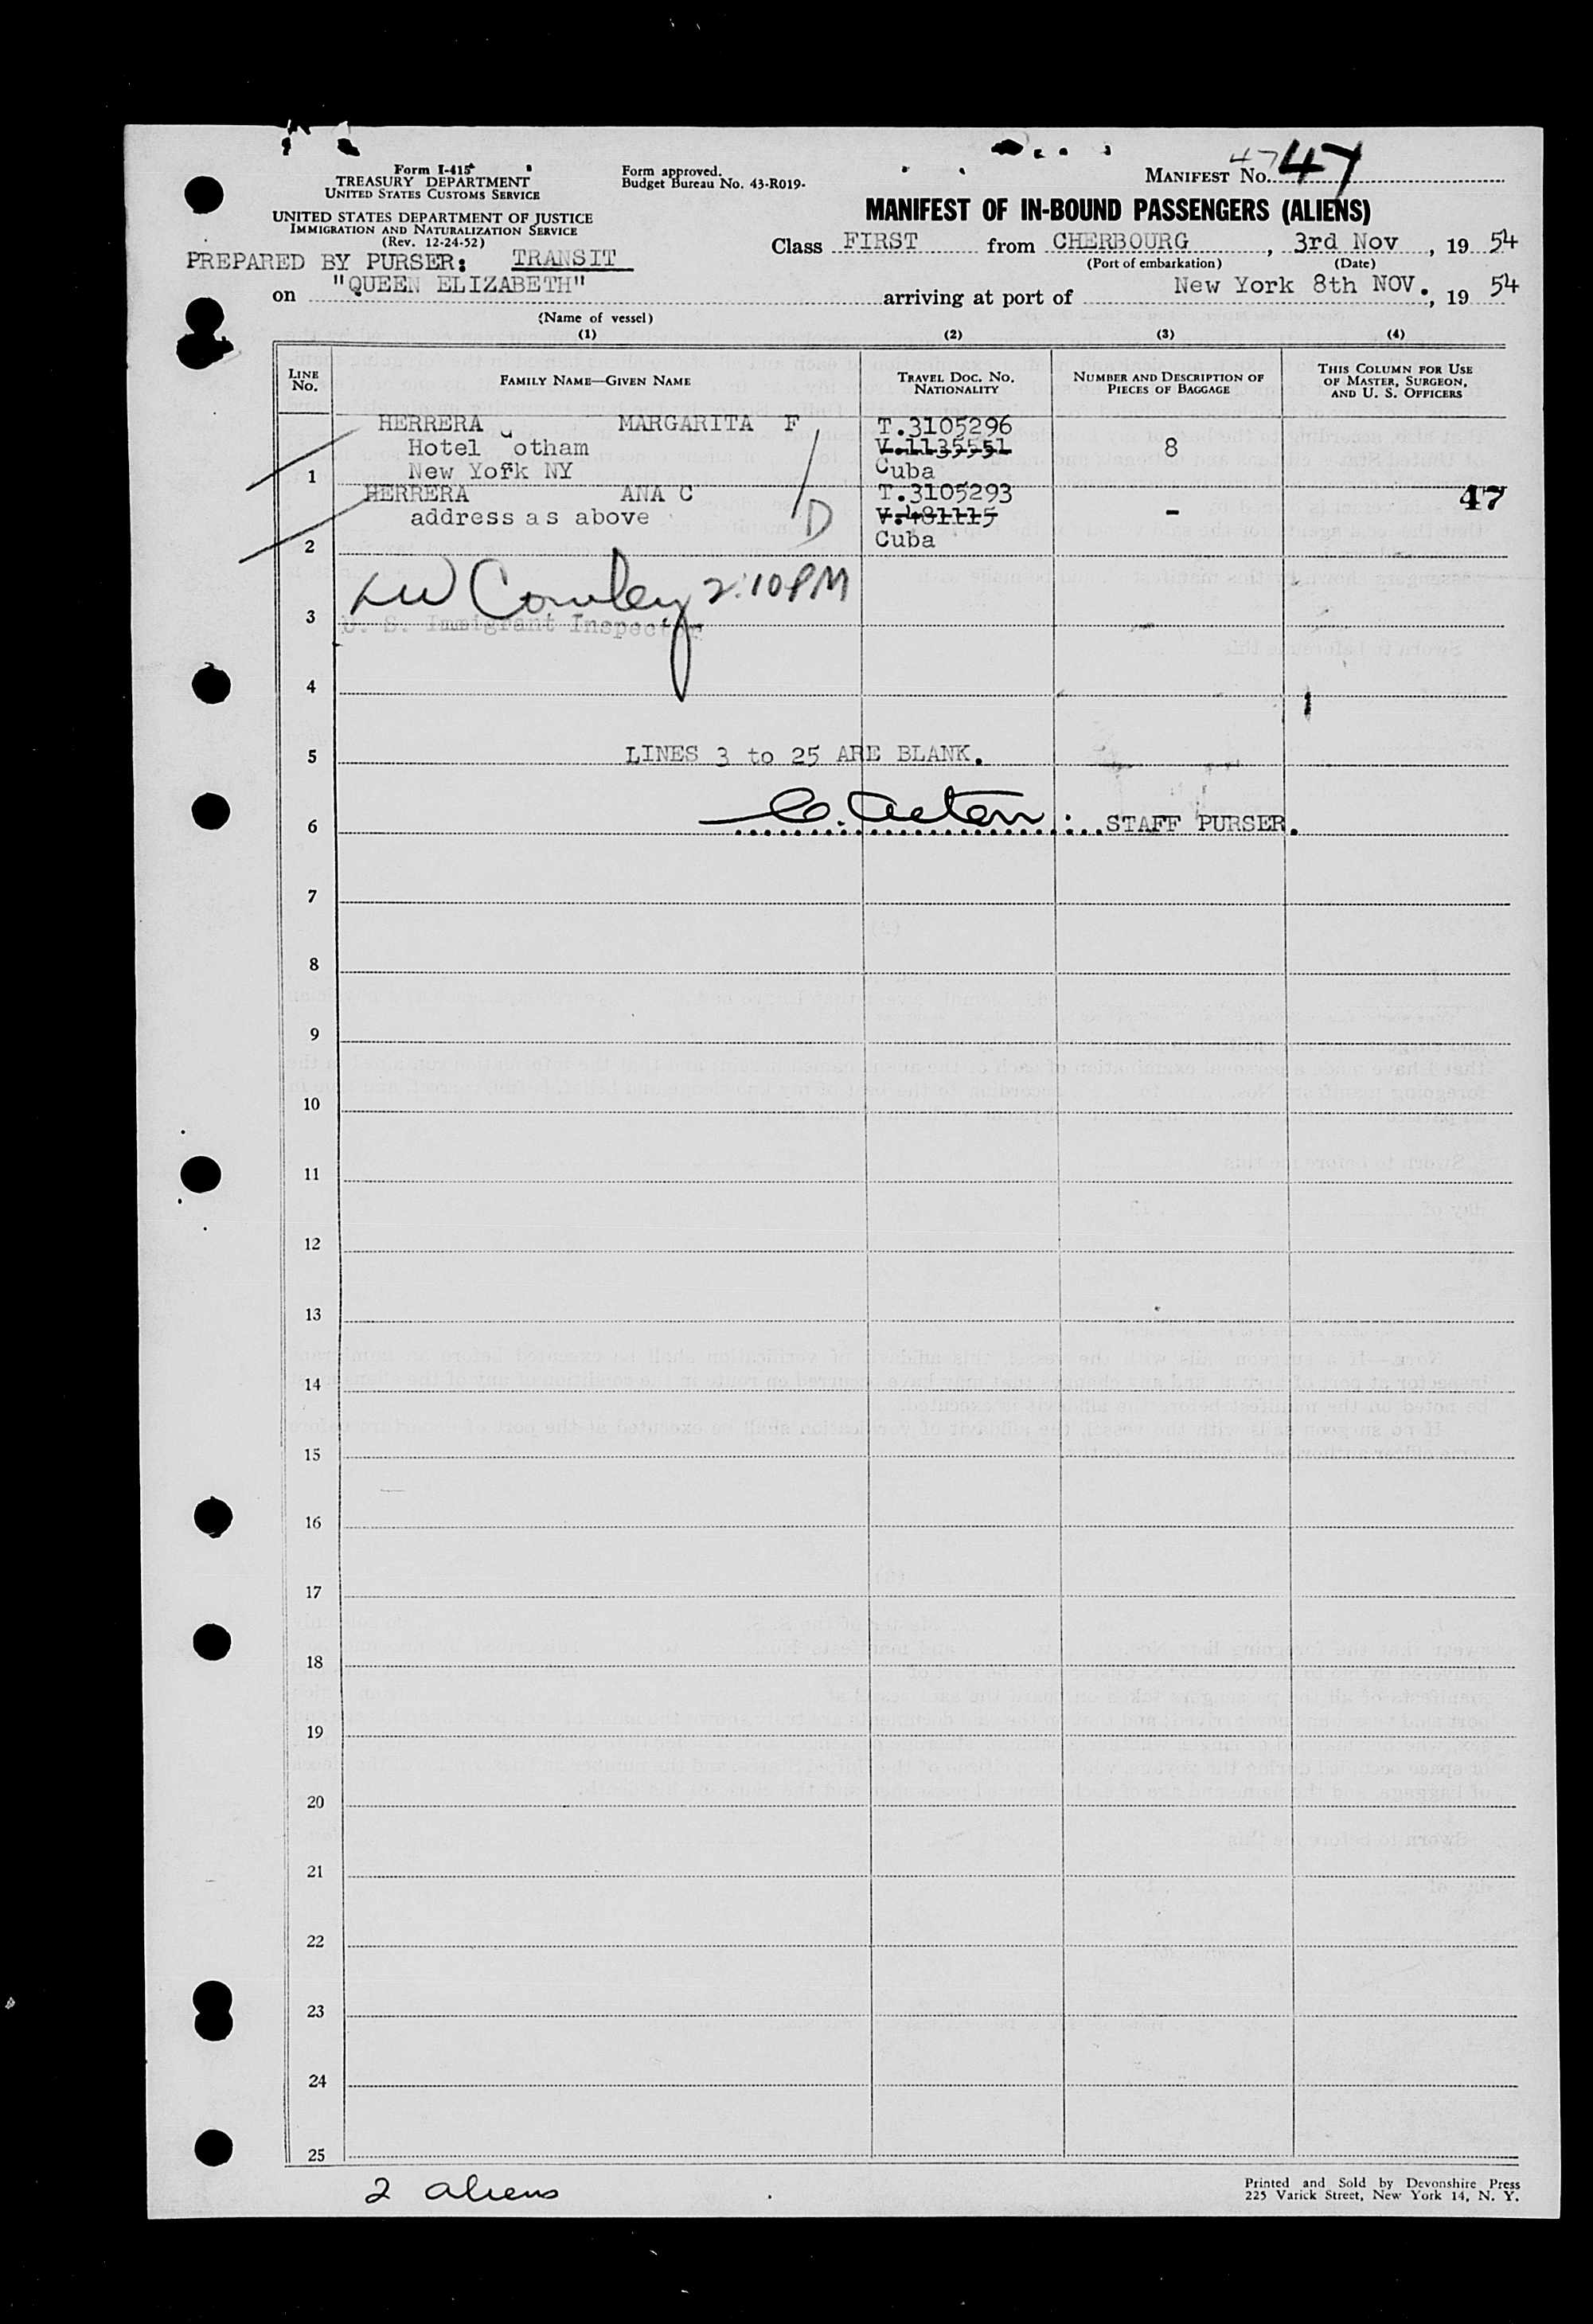 Form I-415
TREASURY DEPARTMENT
UNITED STATES CUSTOMS SERVICE
UNITED STATES DEPARTMENT OF JUSTICE
IMMIGRATION AND NATURALIZATION SERVICE
(Rev. 12-24-52)
Form approved.
Budget Bureau No. 43-R019-
47
MANIFEST No. 47
MANIFEST OF IN-BOUND PASSENGERS (ALIENS)
Class FIRST from CHERBOURG, 3rd Nov, 19 54
(Port of embarkation) (Date)
PREPARED BY PURSER: TRANSIT
on "QUEEN ELIZABETH" arriving at port of New York 8th NOV., 19 54
(Name of vessel)
(1) (2) (3) (4)
LINE No. FAMILY NAME—GIVEN NAME TRAVEL DOC. No. NATIONALITY NUMBER AND DESCRIPTION OF PIECES OF BAGGAGE THIS COLUMN FOR USE OF MASTER, SURGEON, AND U. S. OFFICERS
HERRERA MARGARITA F T.3105296
Hotel Gotham V.1135551 8
1 New York NY Cuba
HERRERA ANA C T.3105293 47
address as above D V.481115 -
2 Cuba
LW Conley 2:10 PM
3 U. S. Immigrant Inspector
4
5 LINES 3 to 25 ARE BLANK.
6 STAFF PURSER.
7
8
9
10
11
12
13
14
15
16
17
18
19
20
21
22
23
24
25
2 aliens
Printed and Sold by Devonshire Press
225 Varick Street, New York 14, N. Y.